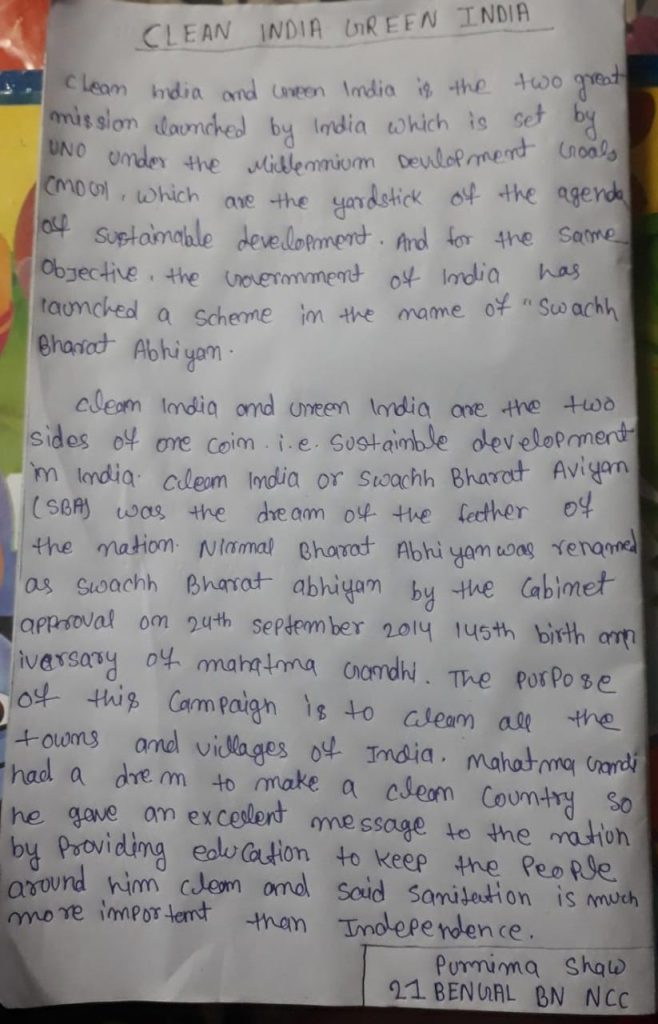 CLEAN INDIA GREEN INDIA
Clean India and Green India is the two great
mission launched by India which is set by
UNO under the Millennium Development Goals
(MDG), which are the yardstick of the agenda
of sustainable development. And for the same
Objective, the Government of India has
launched a scheme in the name of "Swachh
Bharat Abhiyan.
Clean India and Green India are the two
sides of one coin. i.e. Sustainble development
in India. Clean India or Swachh Bharat Aviyan
(SBA) was the dream of the feether of
the nation. Nirmal Bharat Abhiyan was renamed
as swachh Bharat abhiyan by the Cabinet
approval on 24th september 2014 145th birth ann
iversary of mahatma Gandhi. The purpose
of this Campaign is to clean all the
towns and villages of India. Mahatma Gandi
had a dre m to make a clean Country so
he gave an excellent message to the nation
by Providing education to keep the People
around him clean and said sanitation is much
more importent than Independence.
Purnima Shaw
21 BENGAL BN NCC